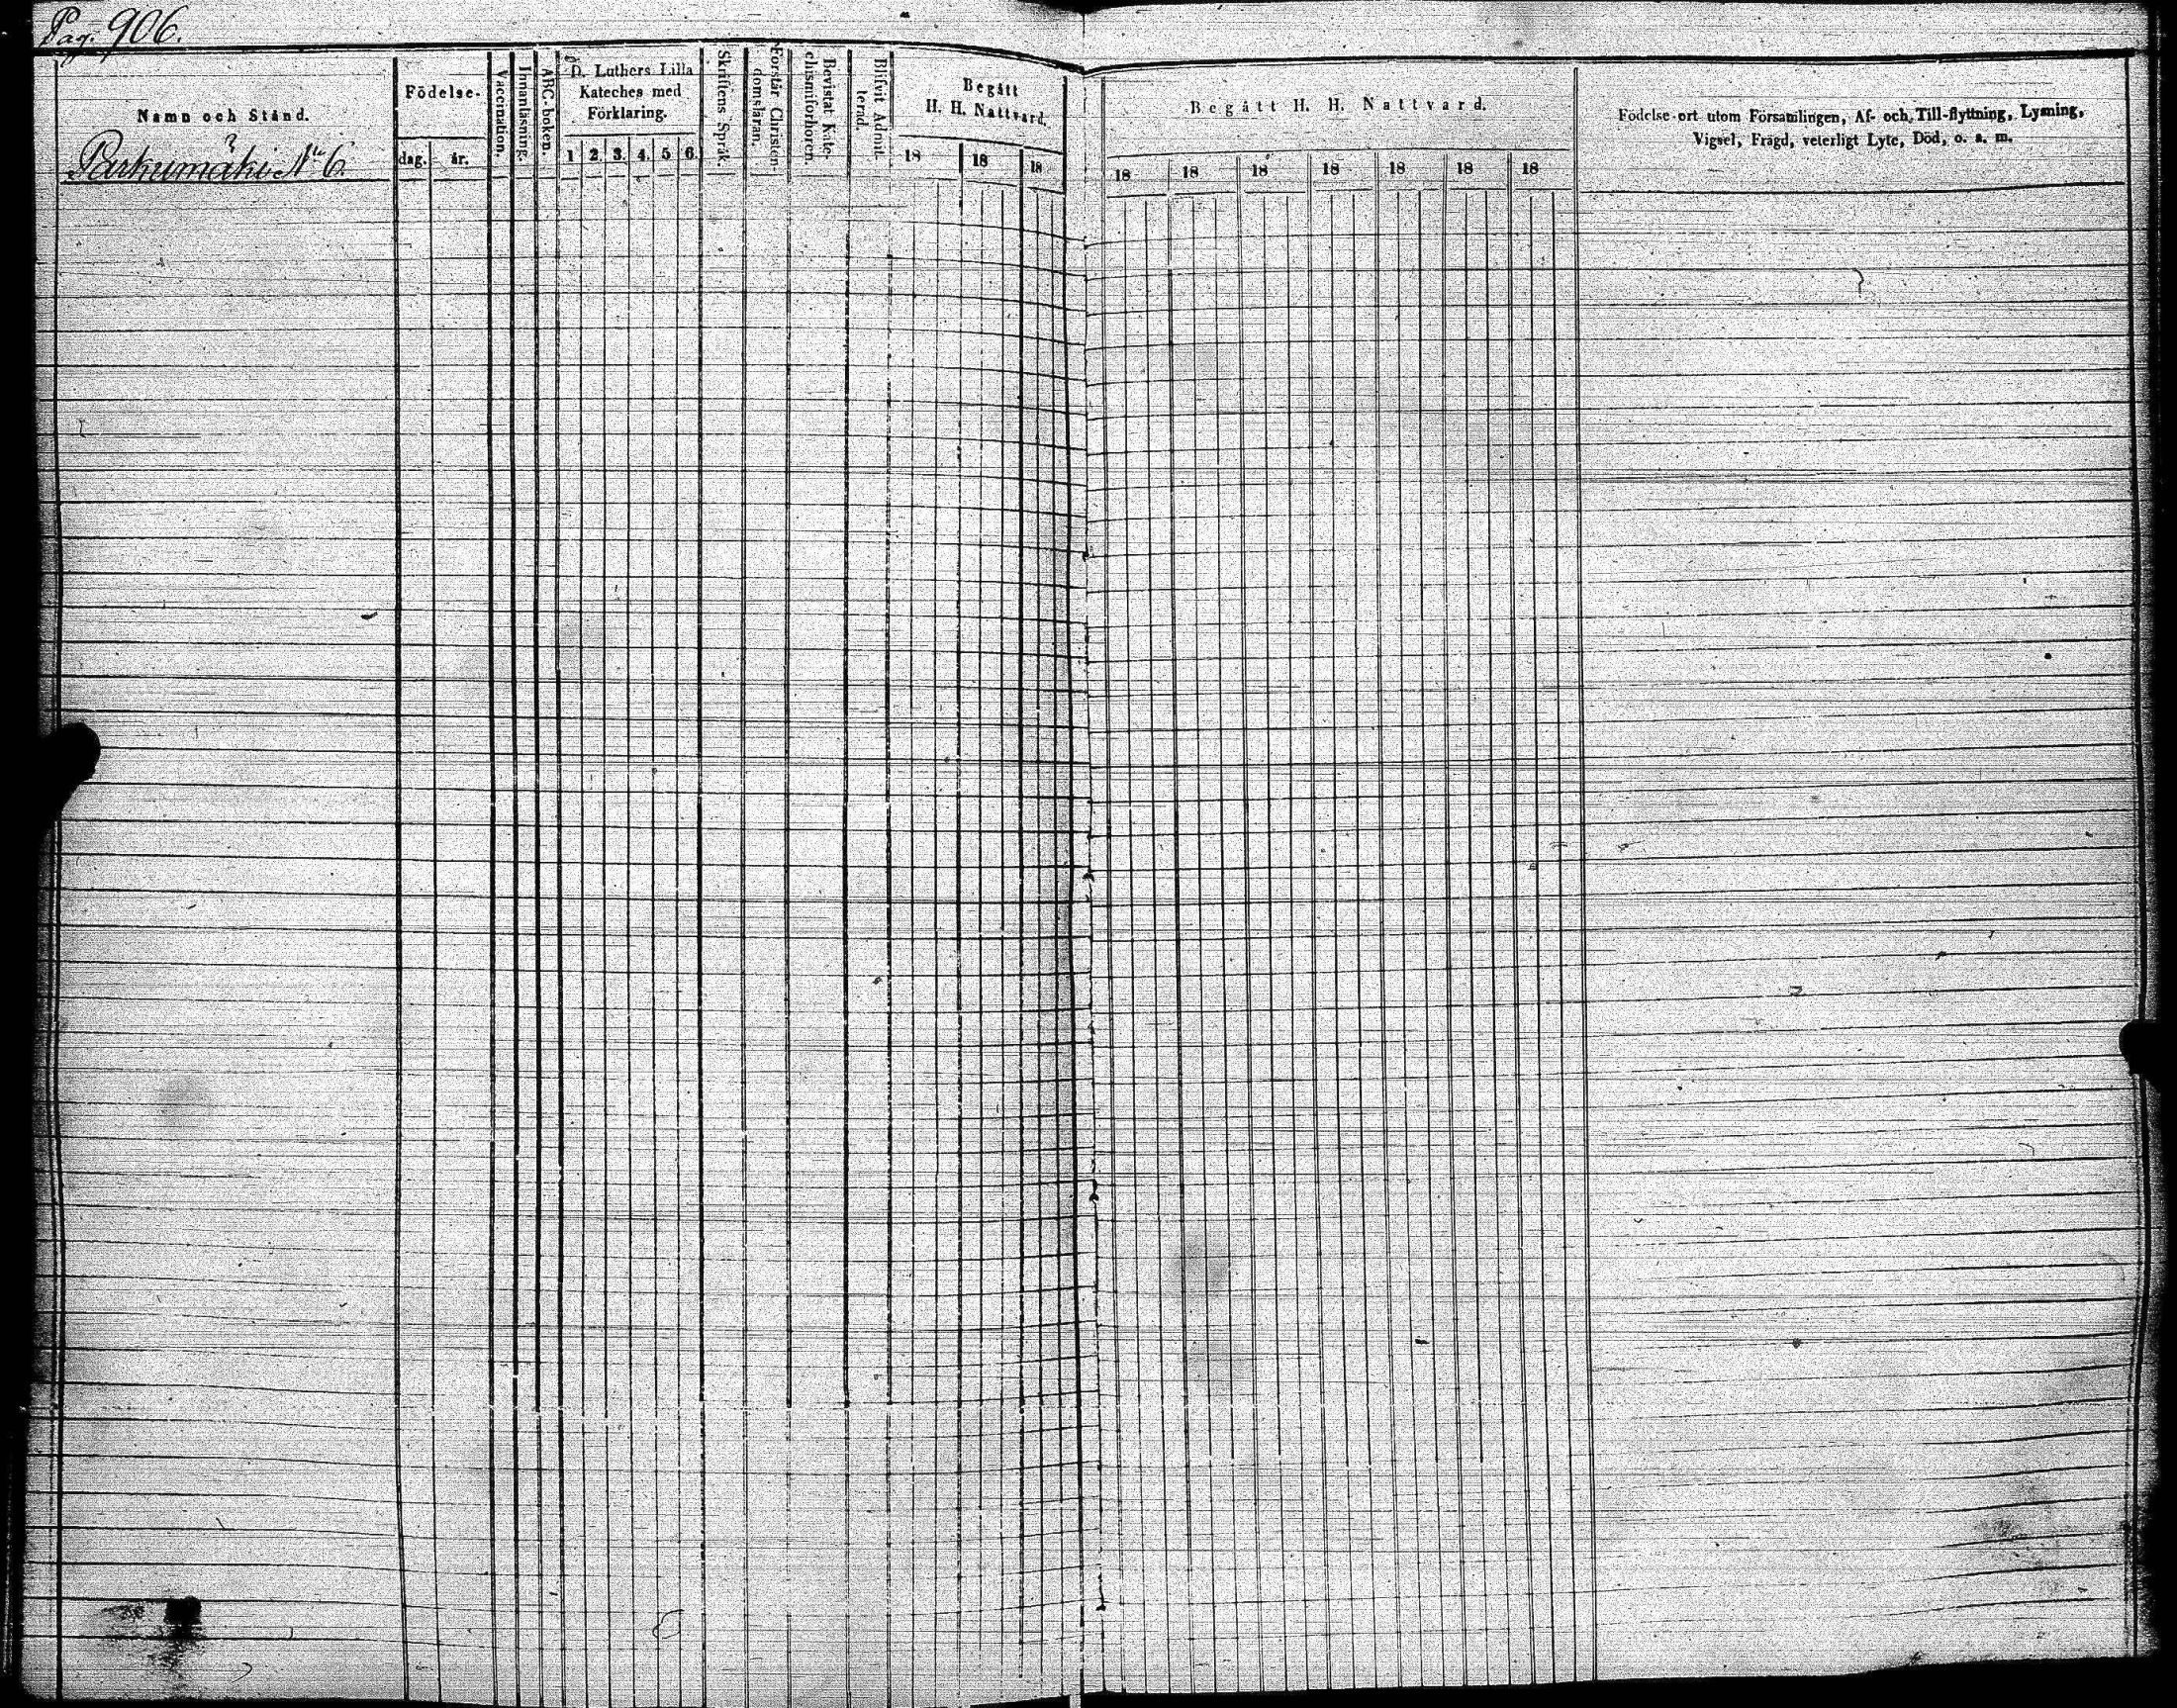 Pag. 906.
Namn och Stånd.
Parkumäki No 6.
Födelse-
dag. år.
Vaccination.
Innanläsning.
ABC-boken.
D. Luthers Lilla
Kateches med
Förklaring.
1 2. 3. 4. 5 6.
Skriftens Språk.
Förstår Christen-
domsläran.
Bevistat Kate-
chismiförhören.
Blifvit Admit-
terad.
Begått
H. H. Nattvard.
18 18 18
Begått H. H. Nattvard.
18 18 18 18 18 18 18
Födelse-ort utom Församlingen, Af- och Till-flyttning, Lysning,
Vigsel, Frägd, veterligt Lyte, Död, o. s. m.